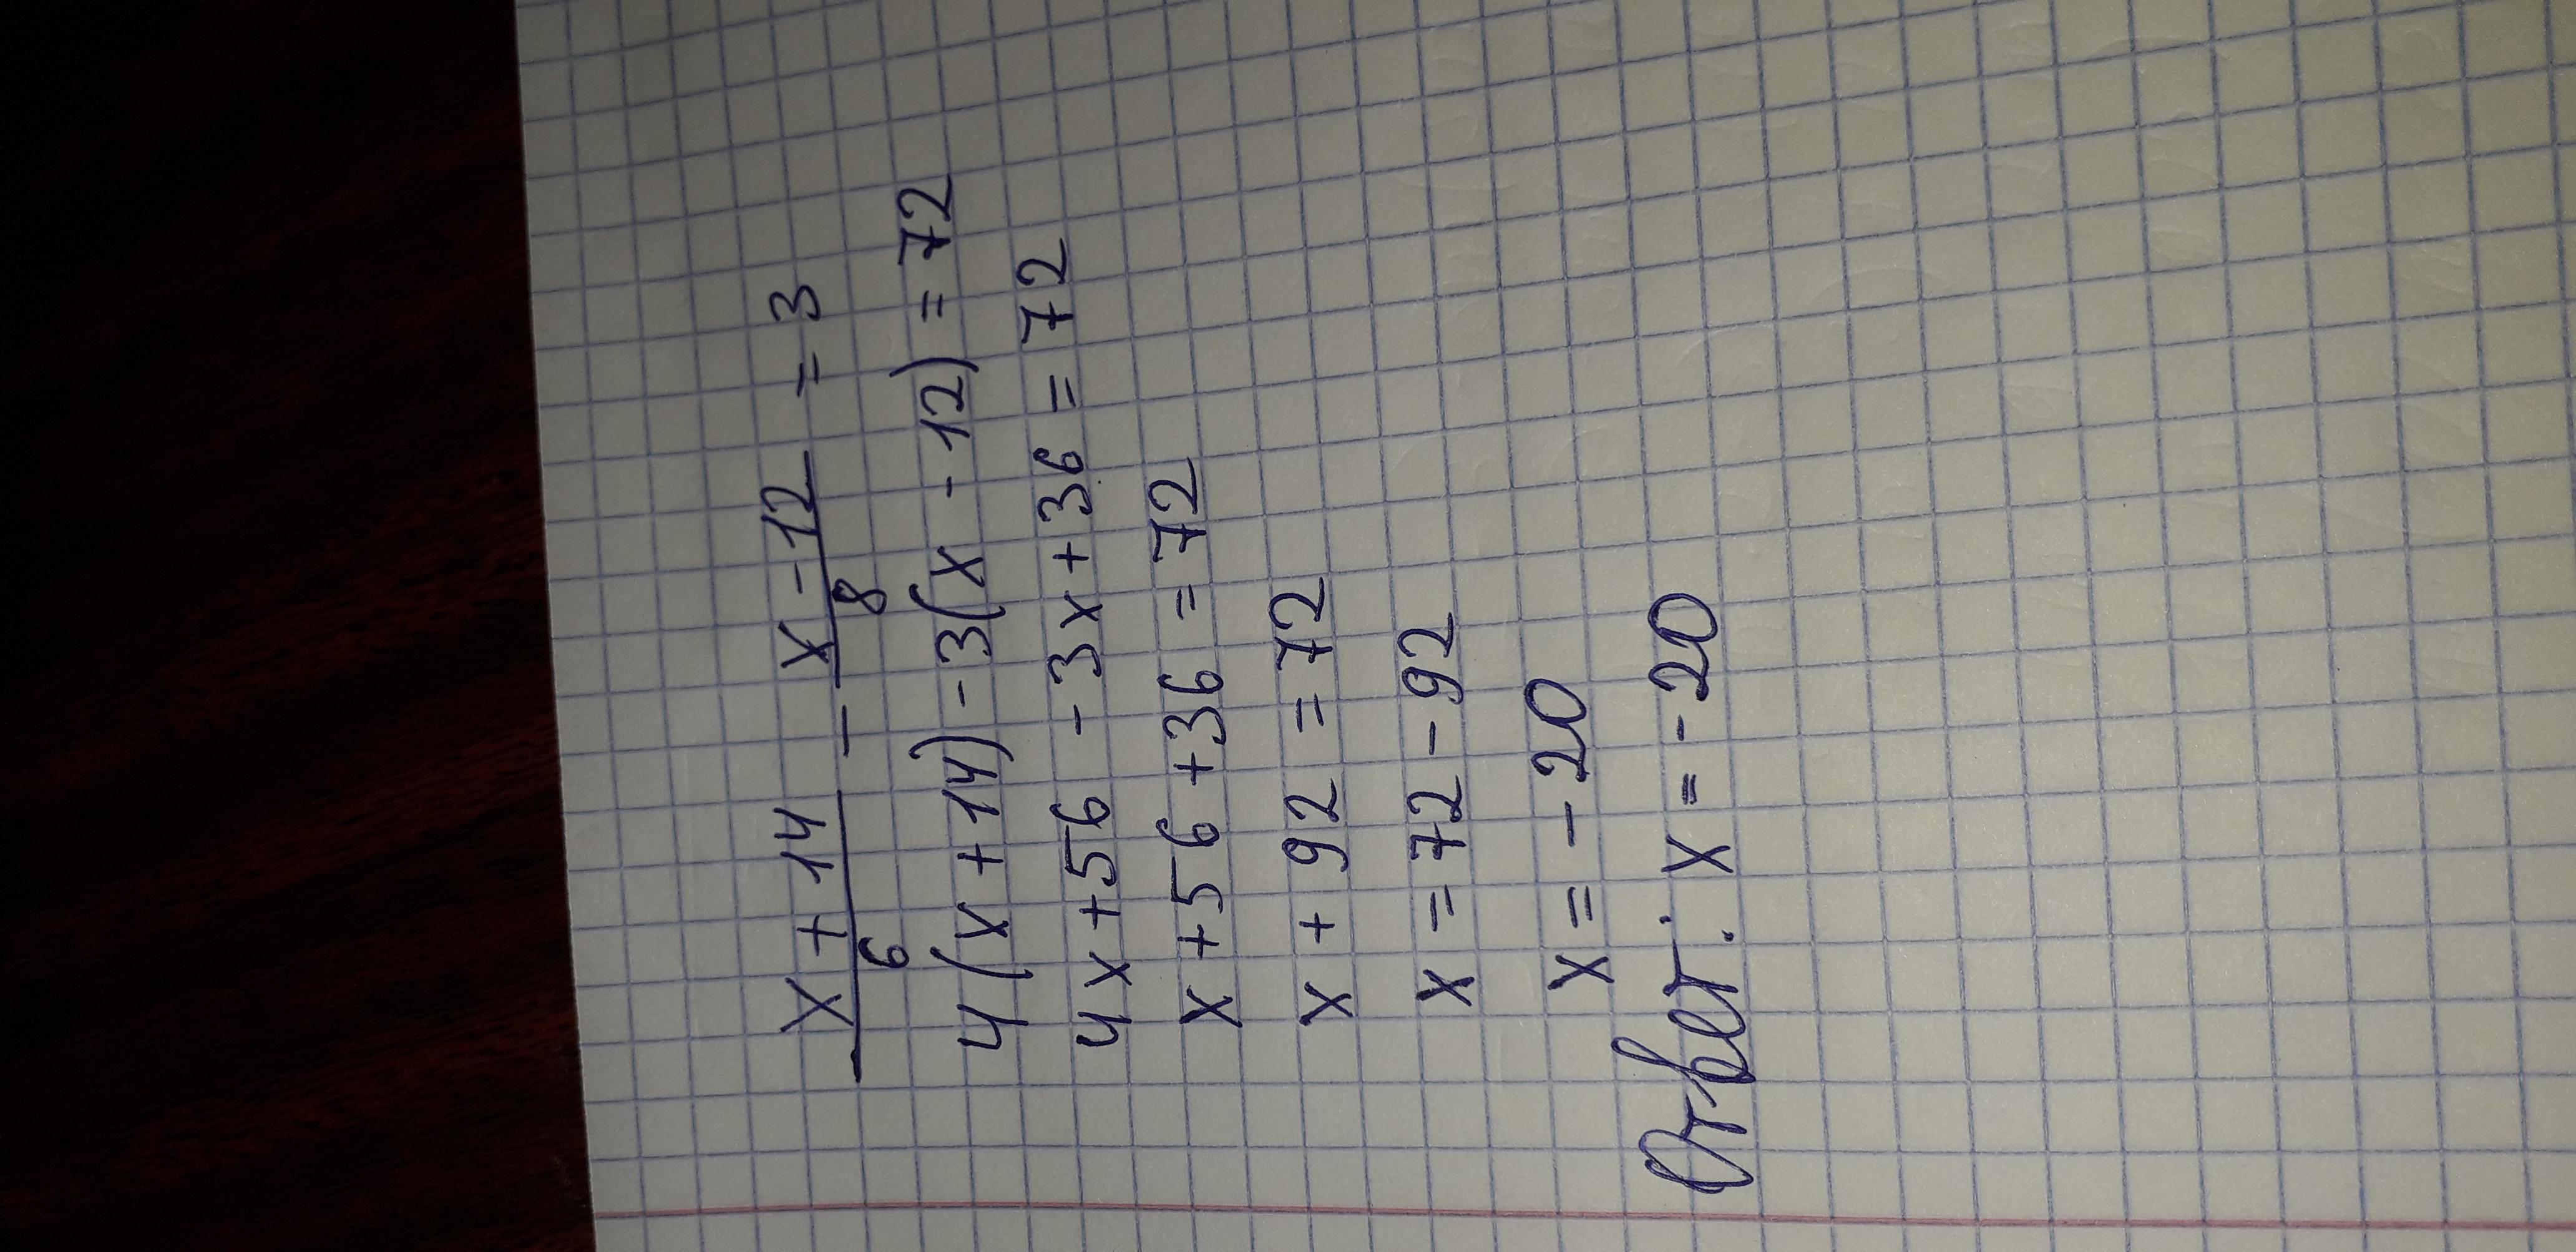 (x + 14)/6 - (x - 12)/8 = 3
4(x + 14) - 3(x - 12) = 72
4x + 56 - 3x + 36 = 72
x + 56 + 36 = 72
x + 92 = 72
x = 72 - 92
x = - 20
Ответ: x = -20